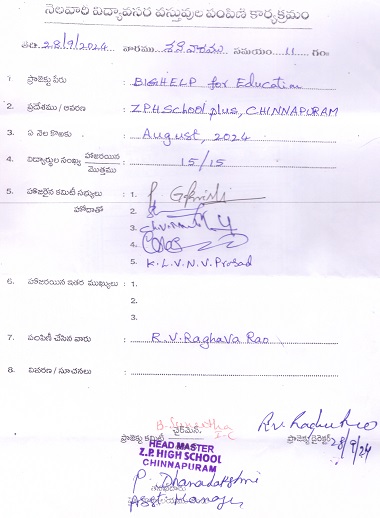 నెలవారీ విద్యావసర వస్తువుల పంపిణీ కార్యక్రమం
తేది. 28/9/2024 వారము శనివారము సమయం 11 గం
1. ప్రాజెక్టు పేరు : BIGHELP for Education
2. ప్రదేశము / ఆవరణ : Z.P.H School plus, CHINNAPURAM
3. ఏ నెల కొఱకు : August, 2024
4. విద్యార్థుల సంఖ్య హాజరయిన / మొత్తము : 15/15
5. హాజరైన కమిటీ సభ్యులు : 1.
హోదాతో 2.
3.
4.
5. K.L.V.N.V. Prasad
6. హాజరయిన ఇతర ముఖ్యులు : 1.
2.
3.
7. పంపిణీ చేసిన వారు : R.V. Raghava Rao
8. వివరణ / సూచనలు :
చైర్‌మెన్,
ప్రాజెక్టు కమిటీ ప్రాజెక్టు డైరెక్టర్ 28/9/24
HEAD MASTER
Z.P. HIGH SCHOOL
CHINNAPURAM
P. Dhanalakshmi
Asst. Manager